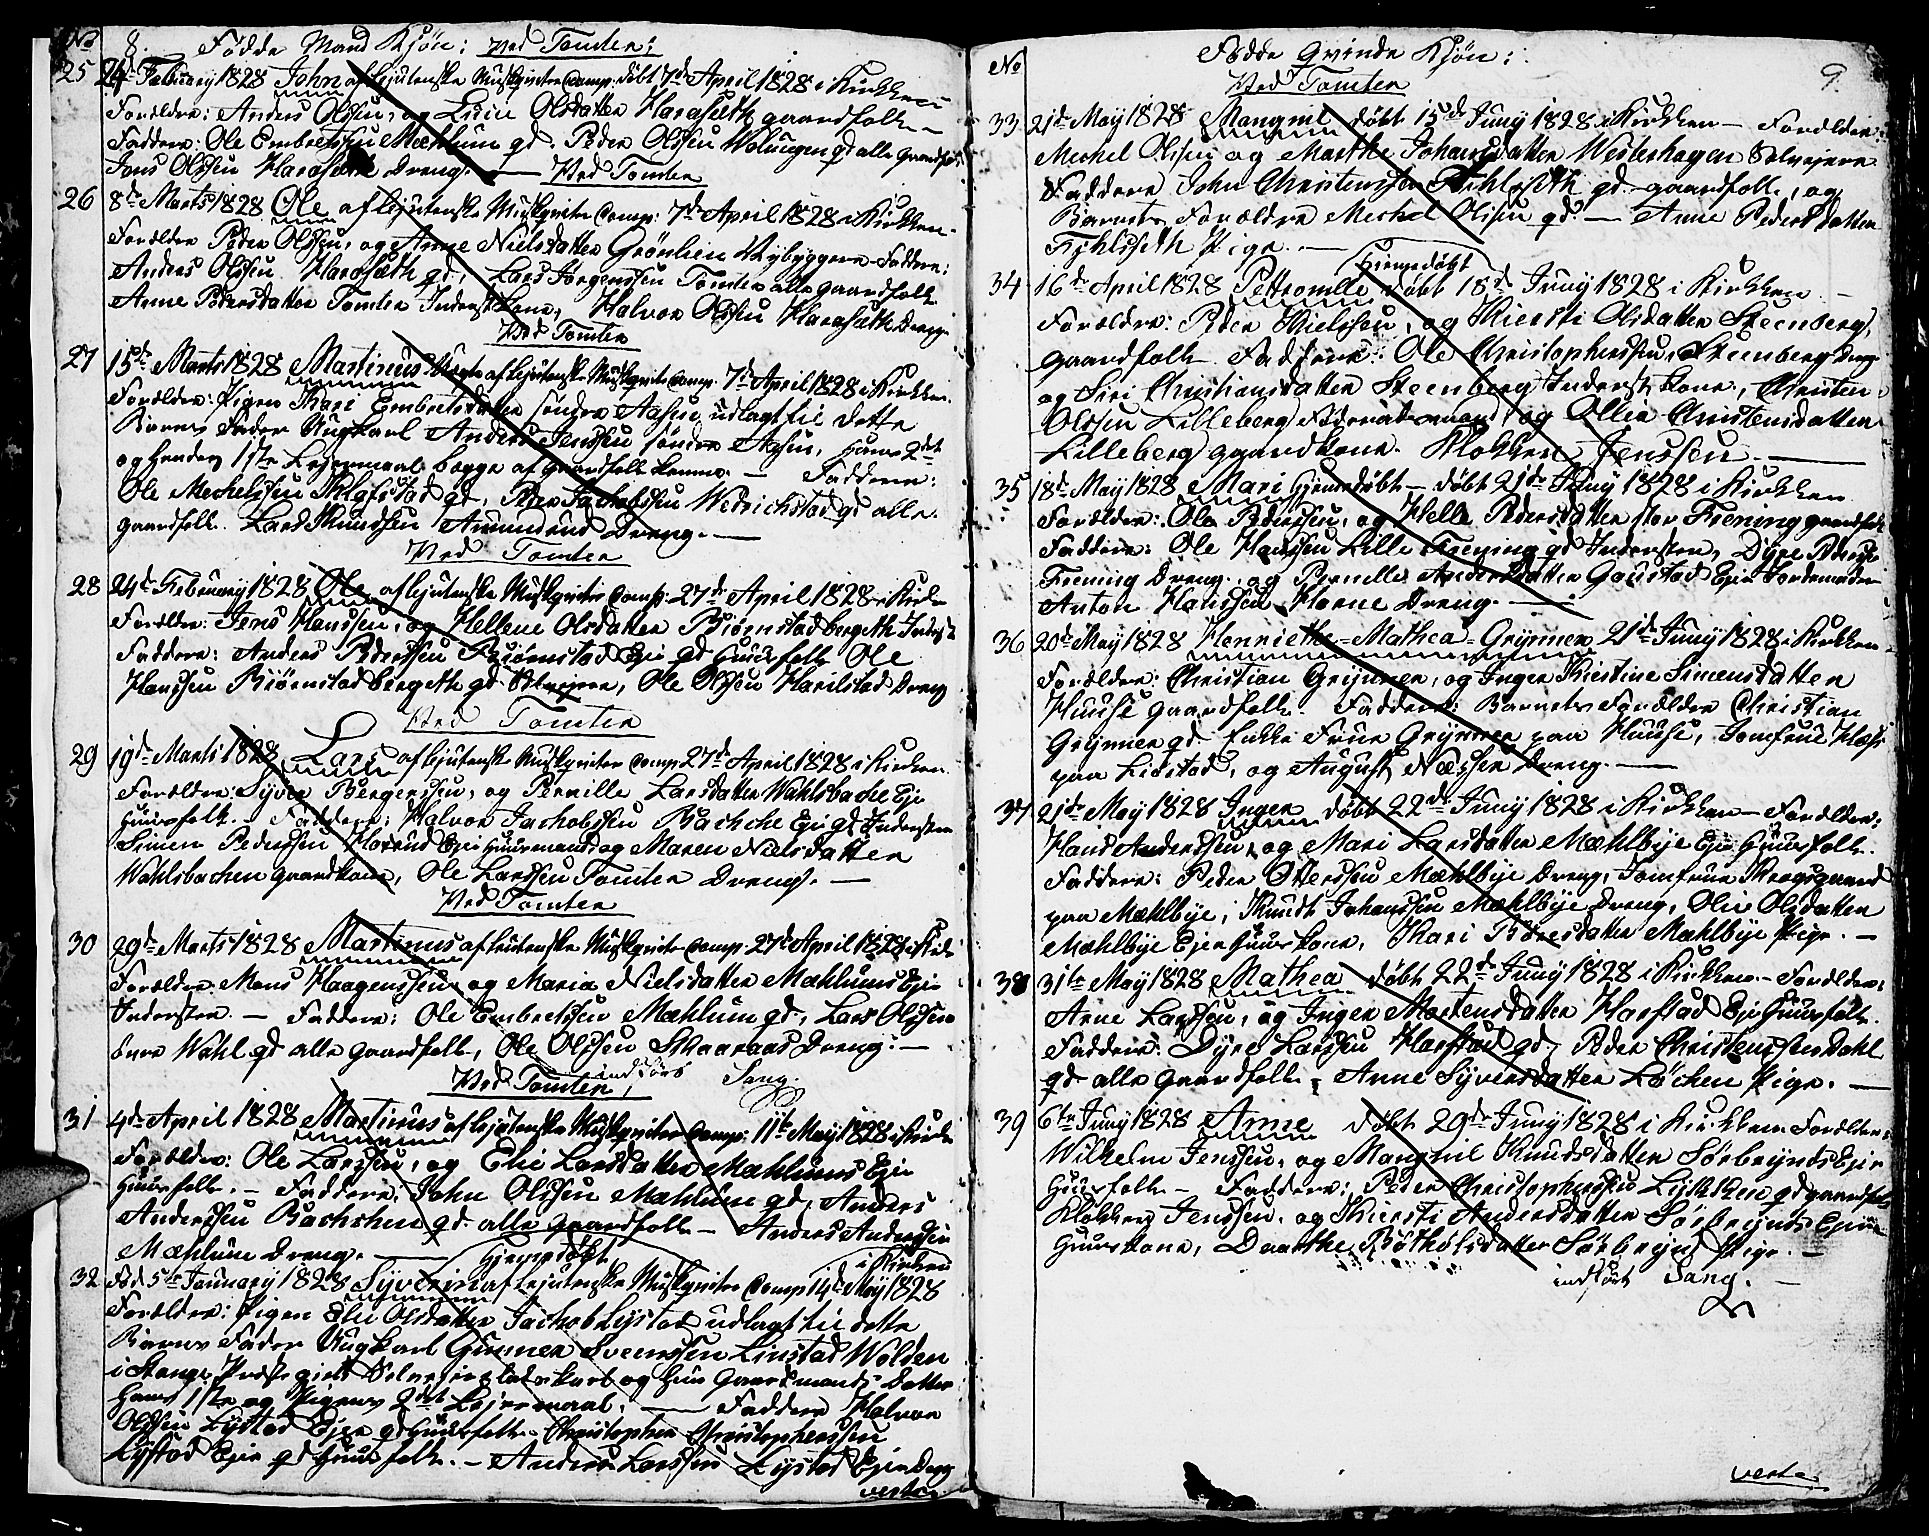 No 8. Fødde Mand Kjøn: Ved Tomten:
25 24d Februarj 1828 John af Lejutenske Muskqviter Comp: døbt 7d April 1828 i Kirkken
Forældre: Anders Olssen, og Lisie Olsdatter Harasæth gaardfolk
Faddere: Ole Embretssen Mæhlum gd. Peder Olssen Wolungen gd alle Gaardfolk
Jens Olssen Harasæth Dreng. — Ved Tomten
26 8de Marts 1828 Ole af Lejutenske Muskqviter Comp: 7d April 1828 i Kirkken
Forældre Peder Olssen, og Anne Nielsdatter Grönlien Nybyggere Faddere:
Anders Olssen Harasæth gd, Lars Jørgenssen Tomten alle gaardfolk
Anne Pedersdatter Tomten Inderst Kone, Halvor Olssen Harasæth Dreng.
Ved Tomten
27 15de Marts 1828 Martinus af Lejutenske Muskqviter Comp: 7d April 1828 i Kirkken.
Forældre: Pigen Kari Embretsdatter søndre Aasen udlagt til dette
Barns Fader Ungkarl Anders Jenssen søndre Aasen, hans 2det
og hendes 1ste Lejermaal begge af Gaardfolk — Faddere:
Ole Mechelssen gd, Peder Jachobssen Wedrichstad gd alle
gaardfolk. Lars Knudssen Amundrud Dreng. —
Ved Tomten
28 24d Februarj 1828 Ole af Lejutenske Muskqviter Comp: 27d April 1828 i Kirke
Forældre: Jens Hanssen, og Hellene Olsdatter Biørnstad bergeth Inderst
Faddere: Anders Pederssen Biørnstad Eje gd huusfolk Ole
Hanssen Biørnstad bergeth gd Selvejere, Ole Olssen Harilstad Dreng
Ved Tomten
29 19d Marts 1828 Lars af Lejutenske Muskqviter Comp 27d April 1828 i Kirkken
Forældre: Syver Bergerssen, og Pernille Larsdatter Wahlsbache Eje
huusfolk. — Faddere: Halvor Jachobssen Bachche Eje gd Indersten
Simen Pederssen Horrud Eje huusmand og Maren Nielsdatter
Wahlsbachen gaardkone, Ole Larssen Tomten Dreng. —
Ved Tomten
30 29d Marts 1828 Martinus af Lejutenske Muskqviter Comp: 27d April 1828 i Kirke
Forældre Mons Haagenssen, og Maria Nielsdatter Mæhlums Eje
Indersten. — Faddere: Ole Embretssen Mæhlum gd, Lars Olssen
Wahl gd alle gaardfolk, Ole Olssen Skaaraas Dreng. —
Ved Tomten, indførs Sang.
31 4de April 1828 Martinus af Lejutenske Muskqviter Comp: 11te Maj 1828 i Kirke
Forældre: Ole Larssen, og Elie Larsdatter Mæhlums Eje
huusfolk. — Faddere: John Olssen Mæhlum gd, Anders
Anderssen Bachchen gd alle gaardfolk — Anders Anderssen
Mæhlum Dreng. — hjemedøbt, i Kirken
32 Fød 5te Januarj 1828 Syverin af Lejutenske Muskqviter Comp 14d Maj 1828
Forældre: Pigen Elie Olsdatter Jachob Lystad udlagt til dette
Barns Fader Ungkarl Gunner Svenssen Linstad Wolden
i Stange Præstegield Selvejerpladskarl og hun Gaardmands Datter
hans 1ste og Pigens 2det Lejermaal. — Faddere Halvor
Olssen Lystad Eje gd huusfolk Christopher Christopherssen
Lystad Eje gd huusfolk. — Anders Larssen Lystad Eje Dreng
verte
No Fødde Qvinde Kjøn: 9.
Ved Tomten
33 21de Maj 1828 Mangnil døbt 15de Junj 1828 i Kirkken — Forældre:
Mechel Olssen og Marthe Johansdatter Westerhagen Selvejere
Faddere John Christenssen gd gaardfolk, og
Barnets Forældre Mechel Olssen gd — Anne Pedersdatter
Pige. — hjemedøbt
34 16de April 1828 Pettronelle døbt 18de Junj 1828 i Kirkken. —
Forældre: Peder Nielssen, og Kiersti Olsdatter Steenberg,
gaardfolk Faddere: Ole Christopherssen Steenberg Dreng
og Siri Christiansdatter Steenberg Inderst Kone, Christen
Olssen Lilleberg Føderaadsmand, og Ollea Christensdatter
Lilleberg gaardkone. Klokker Jenssen. —
35 18de Maj 1828 Mari hjemedøbt — døbt 21de Junj 1828 i Kirkken
Forældre: Ole Pederssen, og Helle Pedersdatter stor Frening gaardfolk
Faddere: Ole Hanssen Lille Frening gd Indersten, Dyre Pederssen
Frening Dreng, og Pernille Andersdatter Gaustad Eje Jordemoder
Anton Hanssen Horne Dreng. —
36 20de Maj 1828 Henriethe = Mathea = Grynner 21de Junj 1828 i Kirkken
Forældre: Christian Grynner, og Inger Kirstine Simensdatter
Huuse gaardfolk. Faddere: Barnets Forældre Christian
Grynner gd. Enke Frue Grynner paa Huuse, Jomfrue
paa Lidstad, og August Næssen Dreng. —
37 21de Maj 1828 Inger døbt 22de Junj 1828 i Kirkken — Forældre:
Hans Anderssen, og Mari Larsdatter Mæhlbye Eje huusfolk.
Faddere: Peder Otterssen Mæhlbye Dreng, Jomfrue Krogsgaard
paa Mæhlbye, Knudt Johanssen Mæhlbye Dreng, Olie Olsdatter
Mæhlbye Eje huuskone, Kari Boresdatter Mæhlbye Pige. —
38 31te Maj 1828 Mathea døbt 22de Junj 1828 i Kirkken — Forældre:
Arne Larssen, og Inger Mortensdatter Harstad Eje huusfolk.
Faddere: Dyre Larssen Harstad gd, Peder Christenssen Dahl
gd alle gaardfolk, Anne Syversdatter Løchen Pige. —
39 6te Junj 1828 Arne døbt 29de Junj 1828 i Kirkken Forældre:
Wilhelm Jenssen, og Mangnil Knudsdatter Sørbrynds Eje
huusfolk — Faddere: Peder Christopherssen Lykken gd gaardfolk
Klokker Jenssen, og Kiersti Andersdatter Sørbrynds Eje
huuskone, Daarthe Bøtholsdatter Sørbrynd Pige. —
indført Sang. —
verte